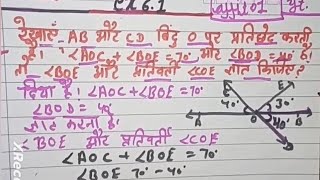 Ex 6.1
रेखाएं AB और CD बिंदु O पर प्रतिछेद करती
है। ∠AOC + ∠BOE = 70° और ∠BOD = 40° है।
तो ∠BOE और प्रतिवर्ती ∠COE ज्ञात कीजिए।
दिया है। ∠AOC + ∠BOE = 70°
∠BOD = 40°
ज्ञात करना है।
∠BOE और प्रतिवर्ती ∠COE
∠AOC + ∠BOE = 70°
∠BOE 70° - 40°
E
40°
30°
O
40°
B